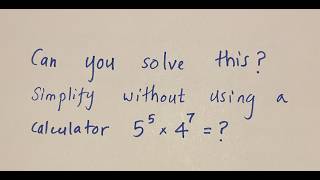 Can you solve this?
Simplify without using a
calculator 5⁵ × 4⁷ = ?